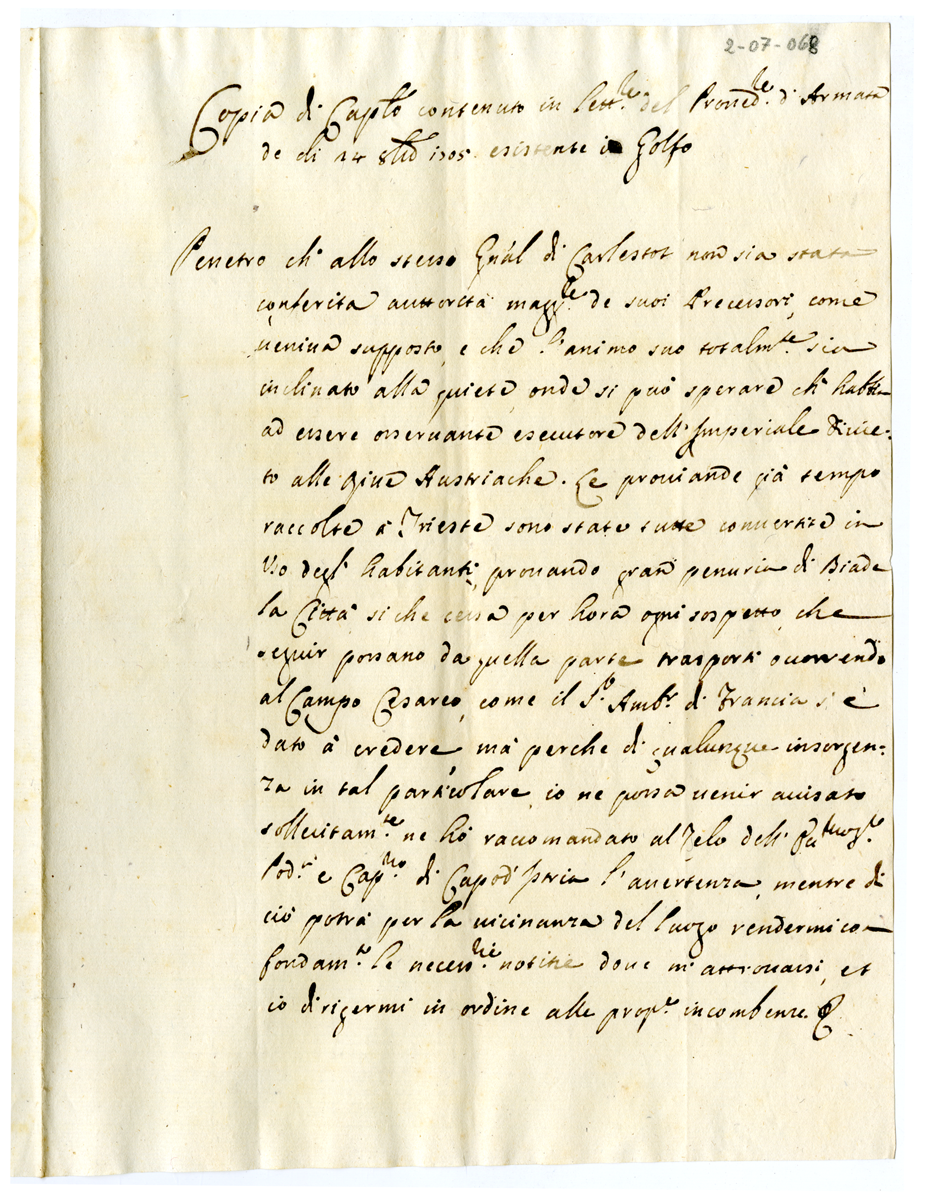 2-07-068
Copia di Cap.lo contenuto in lett.re del Proved.re d'Armata
de di 14 1705 esistente in Golfo
Penetro ch'allo stesso Gnãl di Carlestot non sia stata
conferita auttorità magg.re de suoi Precessori, come
veniva supposto, e che l'animo suo totalm.te sia
inclinato alla quiete, onde si può sperare ch'habbia
ad essere osservante esecutore dell'Imperiale Divie-
to alle Austriache. Le provande già tempo
raccolte à Trieste sono state tutte convertite in
Uso degl'habitanti, provando gran penuria di Biade
la Città, si che cessa per hora ogni sospetto, che
seguir possano da quella parte trasporti occorrendo
al Campo Cesareo, come il S.r Amb.r di Francia s'è
dato à credere, mà perche di qualunque insorgen-
za in tal particolare, io ne possa venir avisato
sollecitam.te ne hò raccomandato al Zelo dell'
Pod.à e Cap.no di Capod'Istria l'avertenza, mentre di
ciò potrà per la vicinanza del luogo rendermi con
fondam.to le necess.rie notitie dove m'attrovassi, et
io dirigermi in ordine alle prop.e incombenze. &